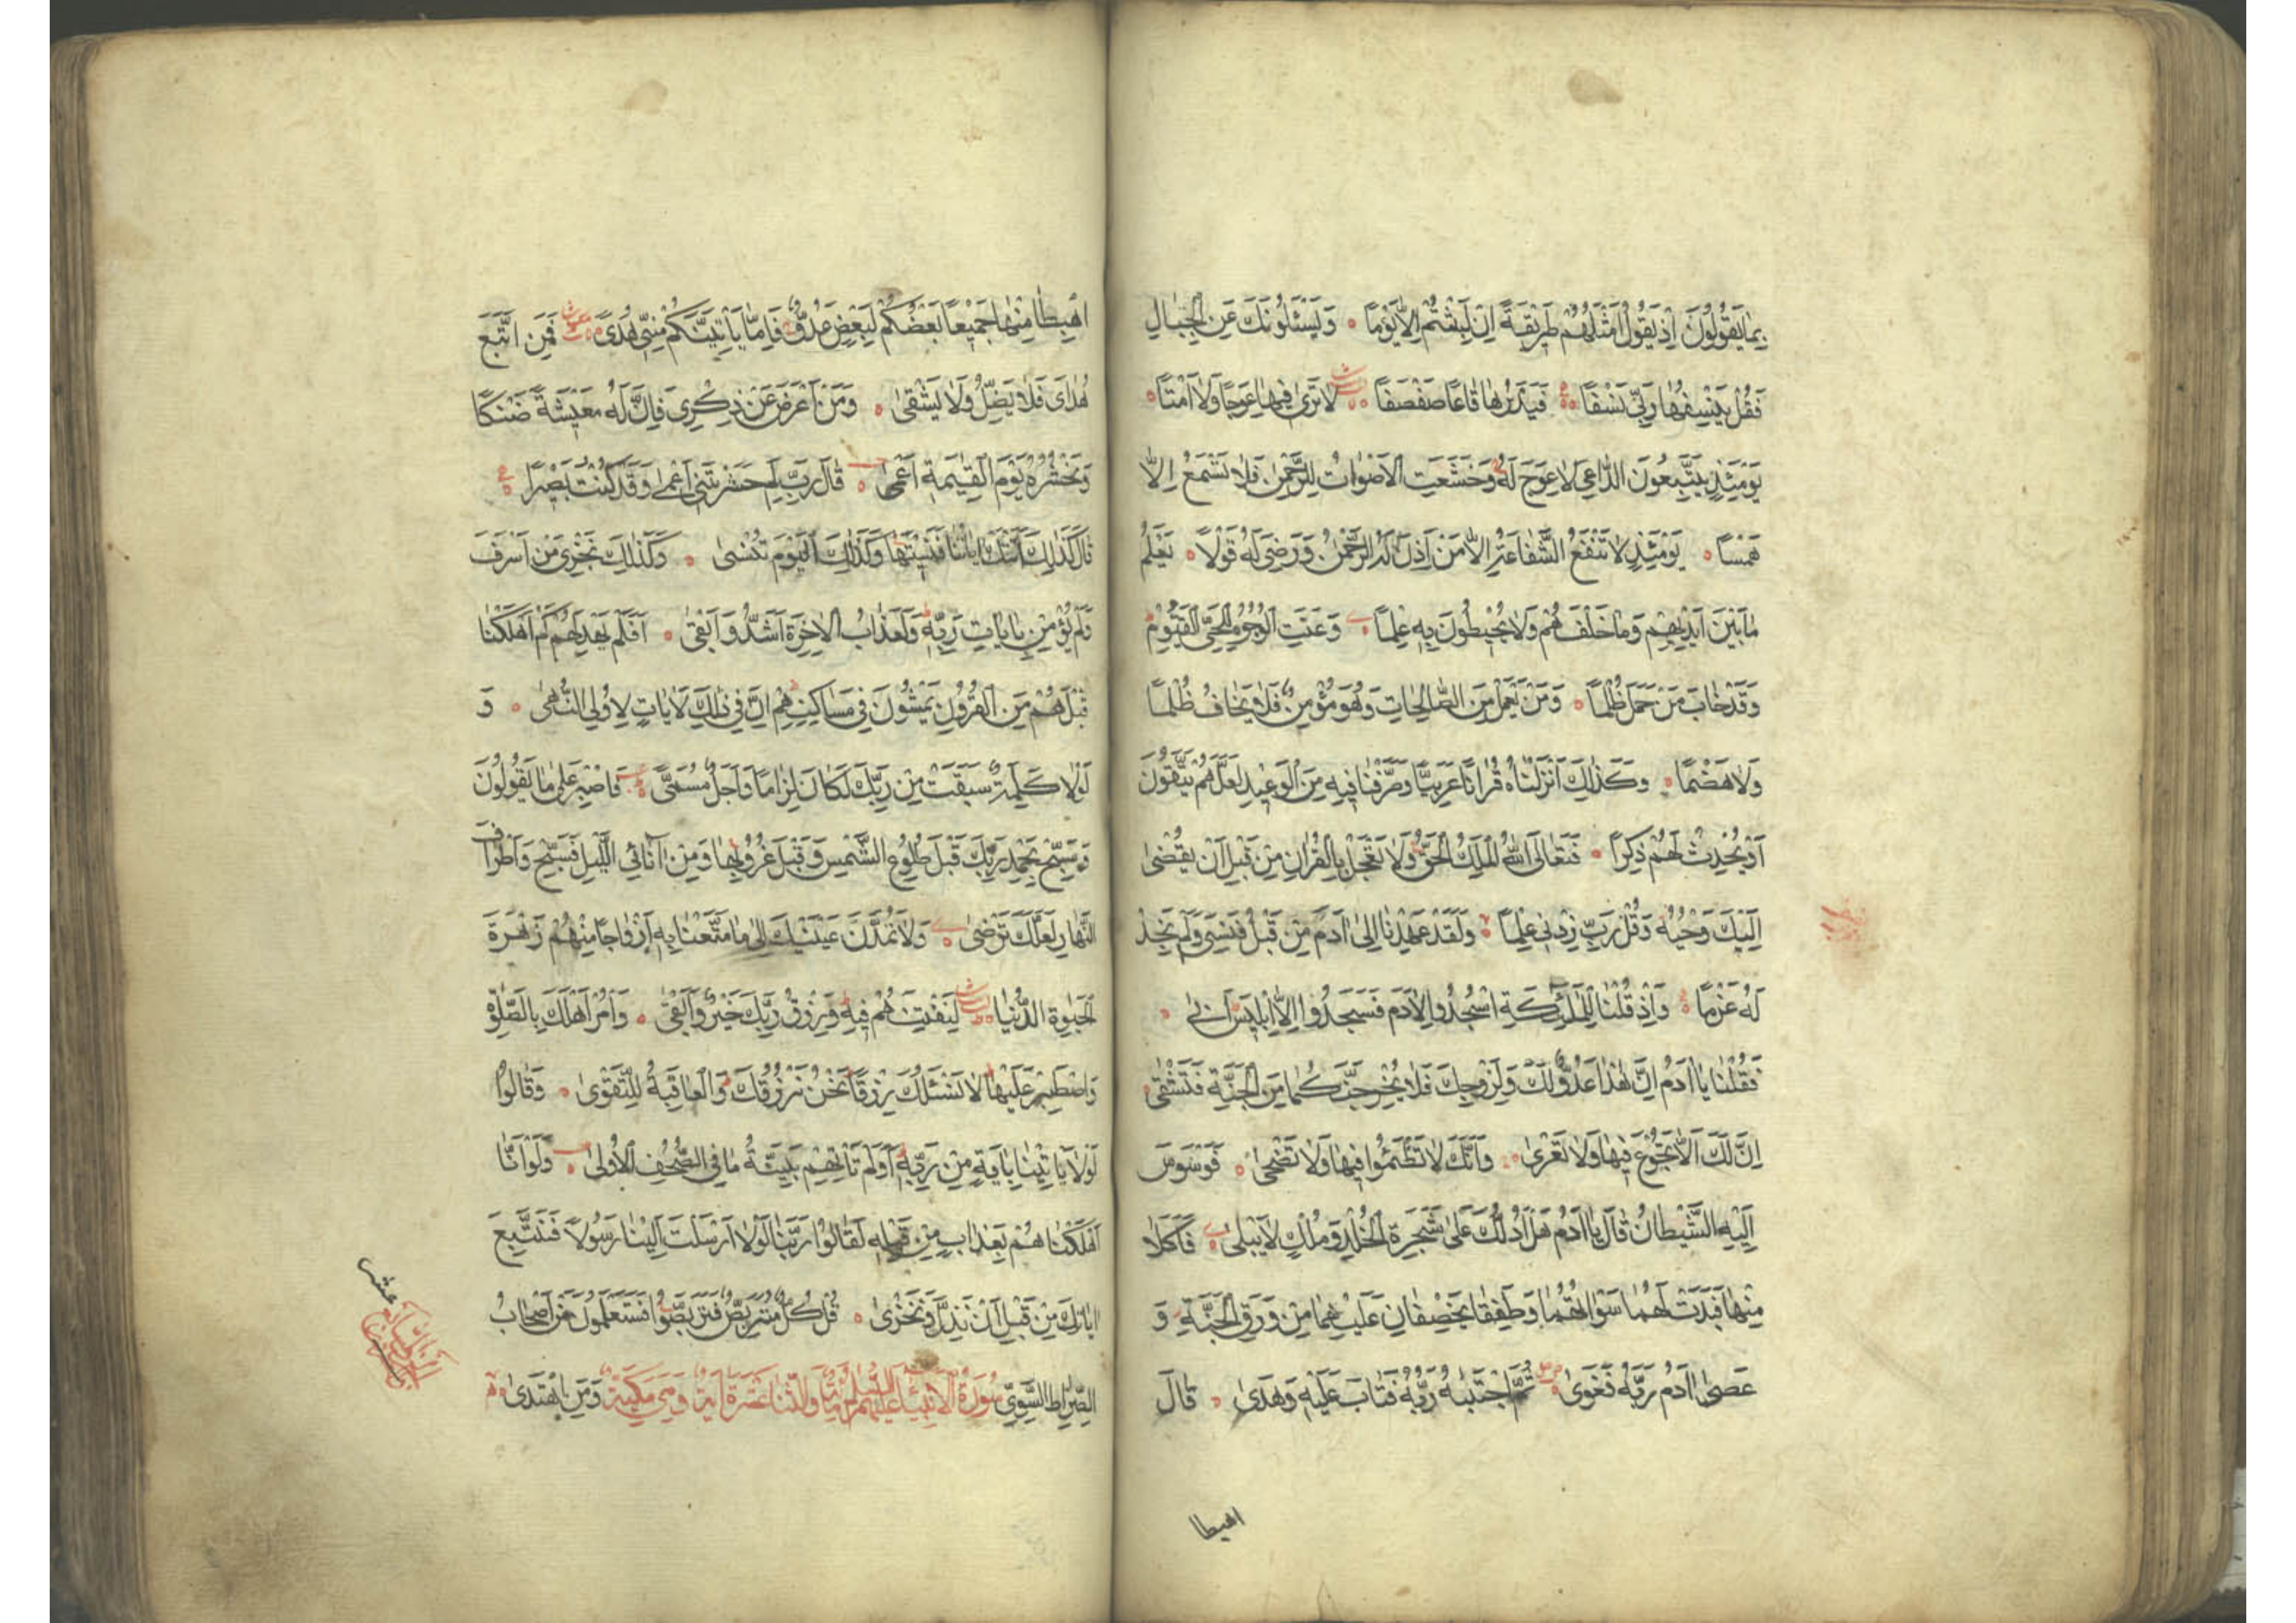 بِمَا يَقُولُونَ اِذْ يَقُولُ اَمْثَلُهُمْ طَرِيقَةً اِنْ لَبِثْتُمْ اِلَّا يَوْمًا وَيَسْئَلُونَكَ عَنِ الْجِبَالِ
فَقُلْ يَنْسِفُهَا رَبِّي نَسْفًا فَيَذَرُهَا قَاعًا صَفْصَفًا لَا تَرٰى فِيهَا عِوَجًا وَلَا اَمْتًا
يَوْمَئِذٍ يَتَّبِعُونَ الدَّاعِيَ لَا عِوَجَ لَهُ وَخَشَعَتِ الْاَصْوَاتُ لِلرَّحْمٰنِ فَلَا تَسْمَعُ اِلَّا
هَمْسًا يَوْمَئِذٍ لَا تَنْفَعُ الشَّفَاعَةُ اِلَّا مَنْ اَذِنَ لَهُ الرَّحْمٰنُ وَرَضِيَ لَهُ قَوْلًا يَعْلَمُ
مَا بَيْنَ اَيْدِيهِمْ وَمَا خَلْفَهُمْ وَلَا يُحِيطُونَ بِهِ عِلْمًا وَعَنَتِ الْوُجُوهُ لِلْحَيِّ الْقَيُّومِ
وَقَدْ خَابَ مَنْ حَمَلَ ظُلْمًا وَمَنْ يَعْمَلْ مِنَ الصَّالِحَاتِ وَهُوَ مُؤْمِنٌ فَلَا يَخَافُ ظُلْمًا
وَلَا هَضْمًا وَكَذٰلِكَ اَنْزَلْنَاهُ قُرْاٰنًا عَرَبِيًّا وَصَرَّفْنَا فِيهِ مِنَ الْوَعِيدِ لَعَلَّهُمْ يَتَّقُونَ
اَوْ يُحْدِثُ لَهُمْ ذِكْرًا فَتَعَالَى اللّٰهُ الْمَلِكُ الْحَقُّ وَلَا تَعْجَلْ بِالْقُرْاٰنِ مِنْ قَبْلِ اَنْ يُقْضٰى
اِلَيْكَ وَحْيُهُ وَقُلْ رَبِّ زِدْنِي عِلْمًا وَلَقَدْ عَهِدْنَا اِلٰى اٰدَمَ مِنْ قَبْلُ فَنَسِيَ وَلَمْ نَجِدْ
لَهُ عَزْمًا وَاِذْ قُلْنَا لِلْمَلٰئِكَةِ اسْجُدُوا لِاٰدَمَ فَسَجَدُوا اِلَّا اِبْلِيسَ اَبٰى
فَقُلْنَا يَا اٰدَمُ اِنَّ هٰذَا عَدُوٌّ لَكَ وَلِزَوْجِكَ فَلَا يُخْرِجَنَّكُمَا مِنَ الْجَنَّةِ فَتَشْقٰى
اِنَّ لَكَ اَلَّا تَجُوعَ فِيهَا وَلَا تَعْرٰى وَاَنَّكَ لَا تَظْمَؤُا فِيهَا وَلَا تَضْحٰى فَوَسْوَسَ
اِلَيْهِ الشَّيْطَانُ قَالَ يَا اٰدَمُ هَلْ اَدُلُّكَ عَلٰى شَجَرَةِ الْخُلْدِ وَمُلْكٍ لَا يَبْلٰى فَاَكَلَا
مِنْهَا فَبَدَتْ لَهُمَا سَوْاٰتُهُمَا وَطَفِقَا يَخْصِفَانِ عَلَيْهِمَا مِنْ وَرَقِ الْجَنَّةِ وَ
عَصٰى اٰدَمُ رَبَّهُ فَغَوٰى ثُمَّ اجْتَبٰيهُ رَبُّهُ فَتَابَ عَلَيْهِ وَهَدٰى قَالَ
اهبطا
اهْبِطَا مِنْهَا جَمِيعًا بَعْضُكُمْ لِبَعْضٍ عَدُوٌّ فَاِمَّا يَاْتِيَنَّكُمْ مِنِّي هُدًى فَمَنِ اتَّبَعَ
هُدَايَ فَلَا يَضِلُّ وَلَا يَشْقٰى وَمَنْ اَعْرَضَ عَنْ ذِكْرِي فَاِنَّ لَهُ مَعِيشَةً ضَنْكًا
وَنَحْشُرُهُ يَوْمَ الْقِيٰمَةِ اَعْمٰى قَالَ رَبِّ لِمَ حَشَرْتَنِي اَعْمٰى وَقَدْ كُنْتُ بَصِيرًا
قَالَ كَذٰلِكَ اَتَتْكَ اٰيَاتُنَا فَنَسِيتَهَا وَكَذٰلِكَ الْيَوْمَ تُنْسٰى وَكَذٰلِكَ نَجْزِي مَنْ اَسْرَفَ
وَلَمْ يُؤْمِنْ بِاٰيَاتِ رَبِّهِ وَلَعَذَابُ الْاٰخِرَةِ اَشَدُّ وَاَبْقٰى اَفَلَمْ يَهْدِ لَهُمْ كَمْ اَهْلَكْنَا
قَبْلَهُمْ مِنَ الْقُرُونِ يَمْشُونَ فِي مَسَاكِنِهِمْ اِنَّ فِي ذٰلِكَ لَاٰيَاتٍ لِاُولِي النُّهٰى وَ
لَوْلَا كَلِمَةٌ سَبَقَتْ مِنْ رَبِّكَ لَكَانَ لِزَامًا وَاَجَلٌ مُسَمًّى فَاصْبِرْ عَلٰى مَا يَقُولُونَ
وَسَبِّحْ بِحَمْدِ رَبِّكَ قَبْلَ طُلُوعِ الشَّمْسِ وَقَبْلَ غُرُوبِهَا وَمِنْ اٰنَائِ الَّيْلِ فَسَبِّحْ وَاَطْرَافَ
النَّهَارِ لَعَلَّكَ تَرْضٰى وَلَا تَمُدَّنَّ عَيْنَيْكَ اِلٰى مَا مَتَّعْنَا بِهِ اَزْوَاجًا مِنْهُمْ زَهْرَةَ
الْحَيٰوةِ الدُّنْيَا لِنَفْتِنَهُمْ فِيهِ وَرِزْقُ رَبِّكَ خَيْرٌ وَاَبْقٰى وَاْمُرْ اَهْلَكَ بِالصَّلٰوةِ
وَاصْطَبِرْ عَلَيْهَا لَا نَسْئَلُكَ رِزْقًا نَحْنُ نَرْزُقُكَ وَالْعَاقِبَةُ لِلتَّقْوٰى وَقَالُوا
لَوْلَا يَاْتِينَا بِاٰيَةٍ مِنْ رَبِّهِ اَوَلَمْ تَاْتِهِمْ بَيِّنَةُ مَا فِي الصُّحُفِ الْاُولٰى وَلَوْ اَنَّا
اَهْلَكْنَاهُمْ بِعَذَابٍ مِنْ قَبْلِهِ لَقَالُوا رَبَّنَا لَوْلَا اَرْسَلْتَ اِلَيْنَا رَسُولًا فَنَتَّبِعَ
اٰيَاتِكَ مِنْ قَبْلِ اَنْ نَذِلَّ وَنَخْزٰى قُلْ كُلٌّ مُتَرَبِّصٌ فَتَرَبَّصُوا فَسَتَعْلَمُونَ مَنْ اَصْحَابُ
الصِّرَاطِ السَّوِيِّ سُورَةُ الْاَنْبِيَاءِ عَلَيْهِمُ السَّلَامُ وَاثْنَتَا عَشَرَةَ اٰيَةً وَهِيَ مَكِّيَّةٌ وَمَنِ اهْتَدٰى
عشر